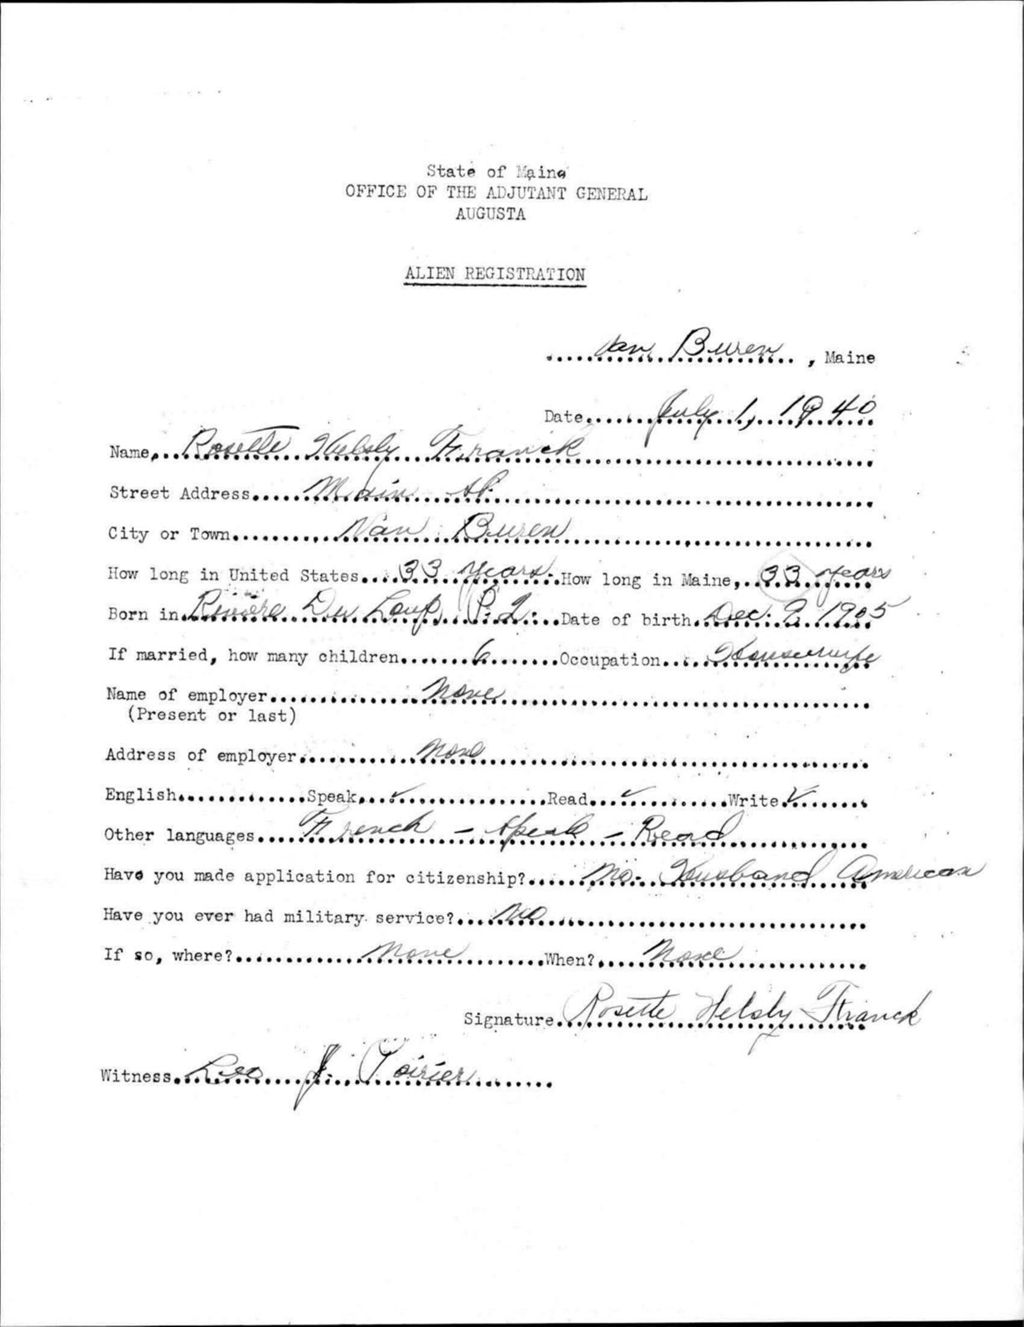 State of Maine
OFFICE OF THE ADJUTANT GENERAL
AUGUSTA
ALIEN REGISTRATION
Van Buren, Maine
Date July 1, 1940
Name Rosette Helsly Franck
Street Address Main St.
City or Town Van Buren
How long in United States 33 years. How long in Maine, 33 years
Born in Rivière Du Loup, P.Q. Date of birth Dec. 9, 1905
If married, how many children 6 Occupation Housewife
Name of employer None
(Present or last)
Address of employer None
English Speak ✓ Read ✓ Write ✓
Other languages French - Speak - Read
Have you made application for citizenship? No. Husband American
Have you ever had military service? No
If so, where? None When? None
Signature Rosette Helsly Franck
Witness Leo J. Poirier